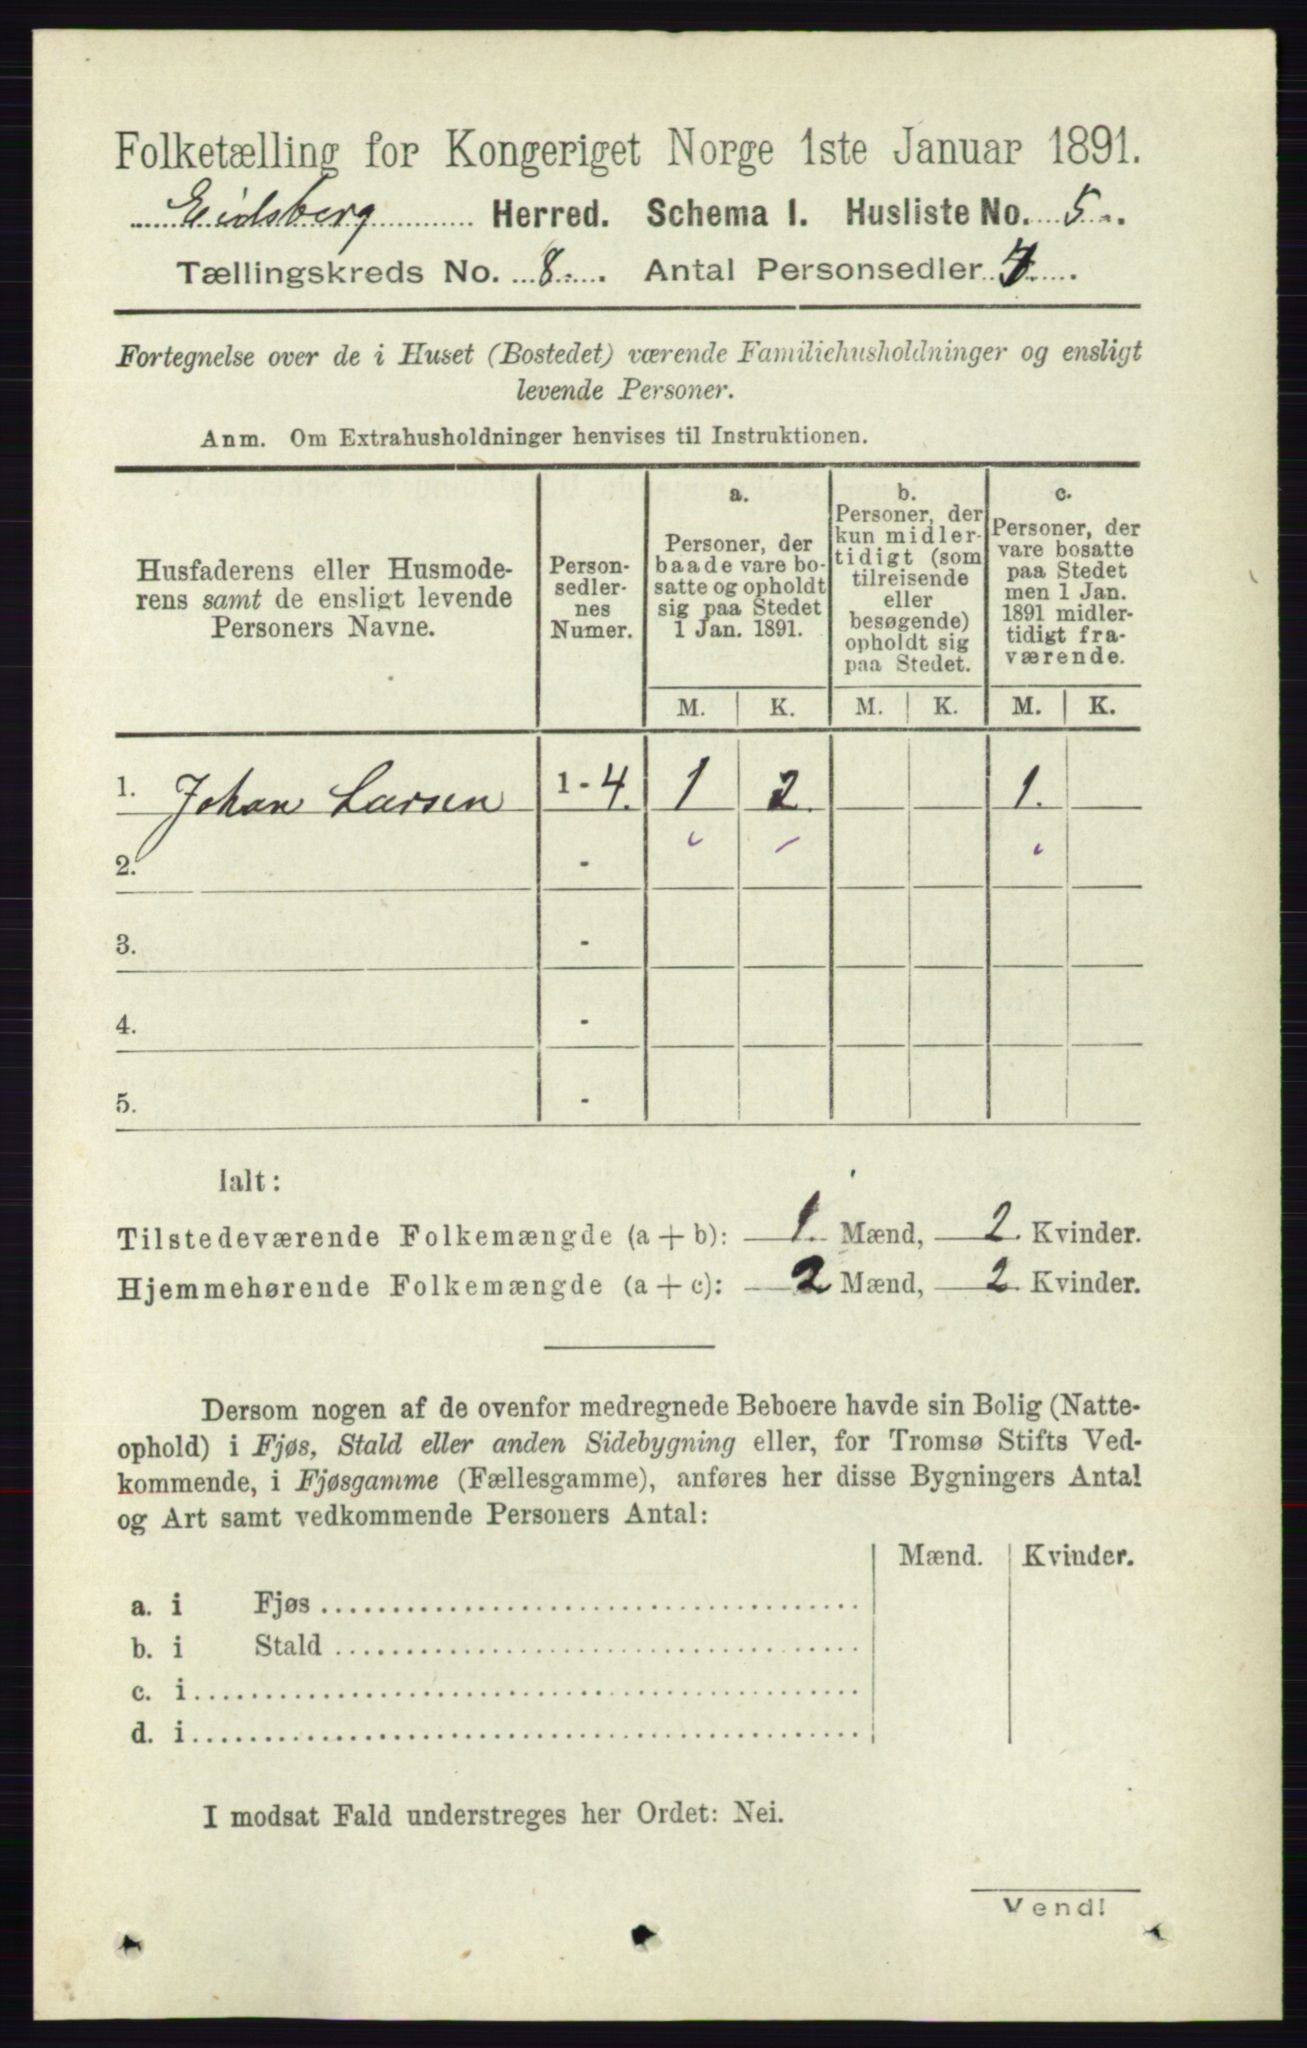 Folketælling for Kongeriget Norge 1ste Januar 1891.
Eidsberg Herred. Schema I. Husliste No. 5.
Tællingskreds No. 8. Antal Personsedler 4.
Fortegnelse over de i Huset (Bostedet) værende Familiehusholdninger og ensligt
levende Personer.
Anm. Om Extrahusholdninger henvises til Instruktionen.
Husfaderens eller Husmode-
rens samt de ensligt levende
Personers Navne.
Person-
sedler-
nes
Numer.
a.
Personer, der
baade vare bo-
satte og opholdt
sig paa Stedet
1 Jan. 1891.
b.
Personer, der
kun midler-
tidigt (som
tilreisende
eller
besøgende)
opholdt sig
paa Stedet.
c.
Personer, der
vare bosatte
paa Stedet
men 1 Jan.
1891 midler-
tidigt fra-
værende.
M. K. M. K. M. K.
1. Johan Larsen 1 - 4. 1 2. 1.
2. -
3. -
4. -
5. -
Ialt:
Tilstedeværende Folkemængde (a + b): 1. Mænd, 2. Kvinder.
Hjemmehørende Folkemængde (a + c): 2 Mænd, 2. Kvinder.
Dersom nogen af de ovenfor medregnede Beboere havde sin Bolig (Natte-
ophold) i Fjøs, Stald eller anden Sidebygning eller, for Tromsø Stifts Ved-
kommende, i Fjøsgamme (Fællesgamme), anføres her disse Bygningers Antal
og Art samt vedkommende Personers Antal:
Mænd. Kvinder.
a. i Fjøs
b. i Stald
c. i
d. i
I modsat Fald understreges her Ordet: Nei.
Vend!